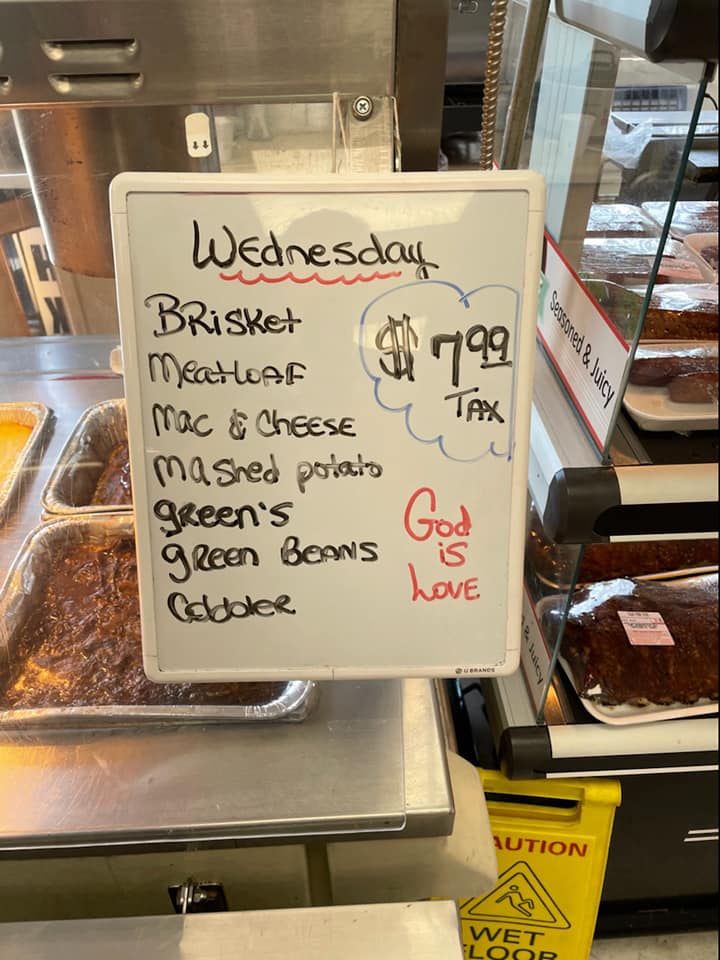 Wednesday
Brisket
Meatloaf
Mac & Cheese
mashed potato
green's
green Beans
Cobbler
$ 7.99
TAX
God
is
Love
U BRANDS
Seasoned & Juicy
& Juicy
AUTION
WET
LOOR